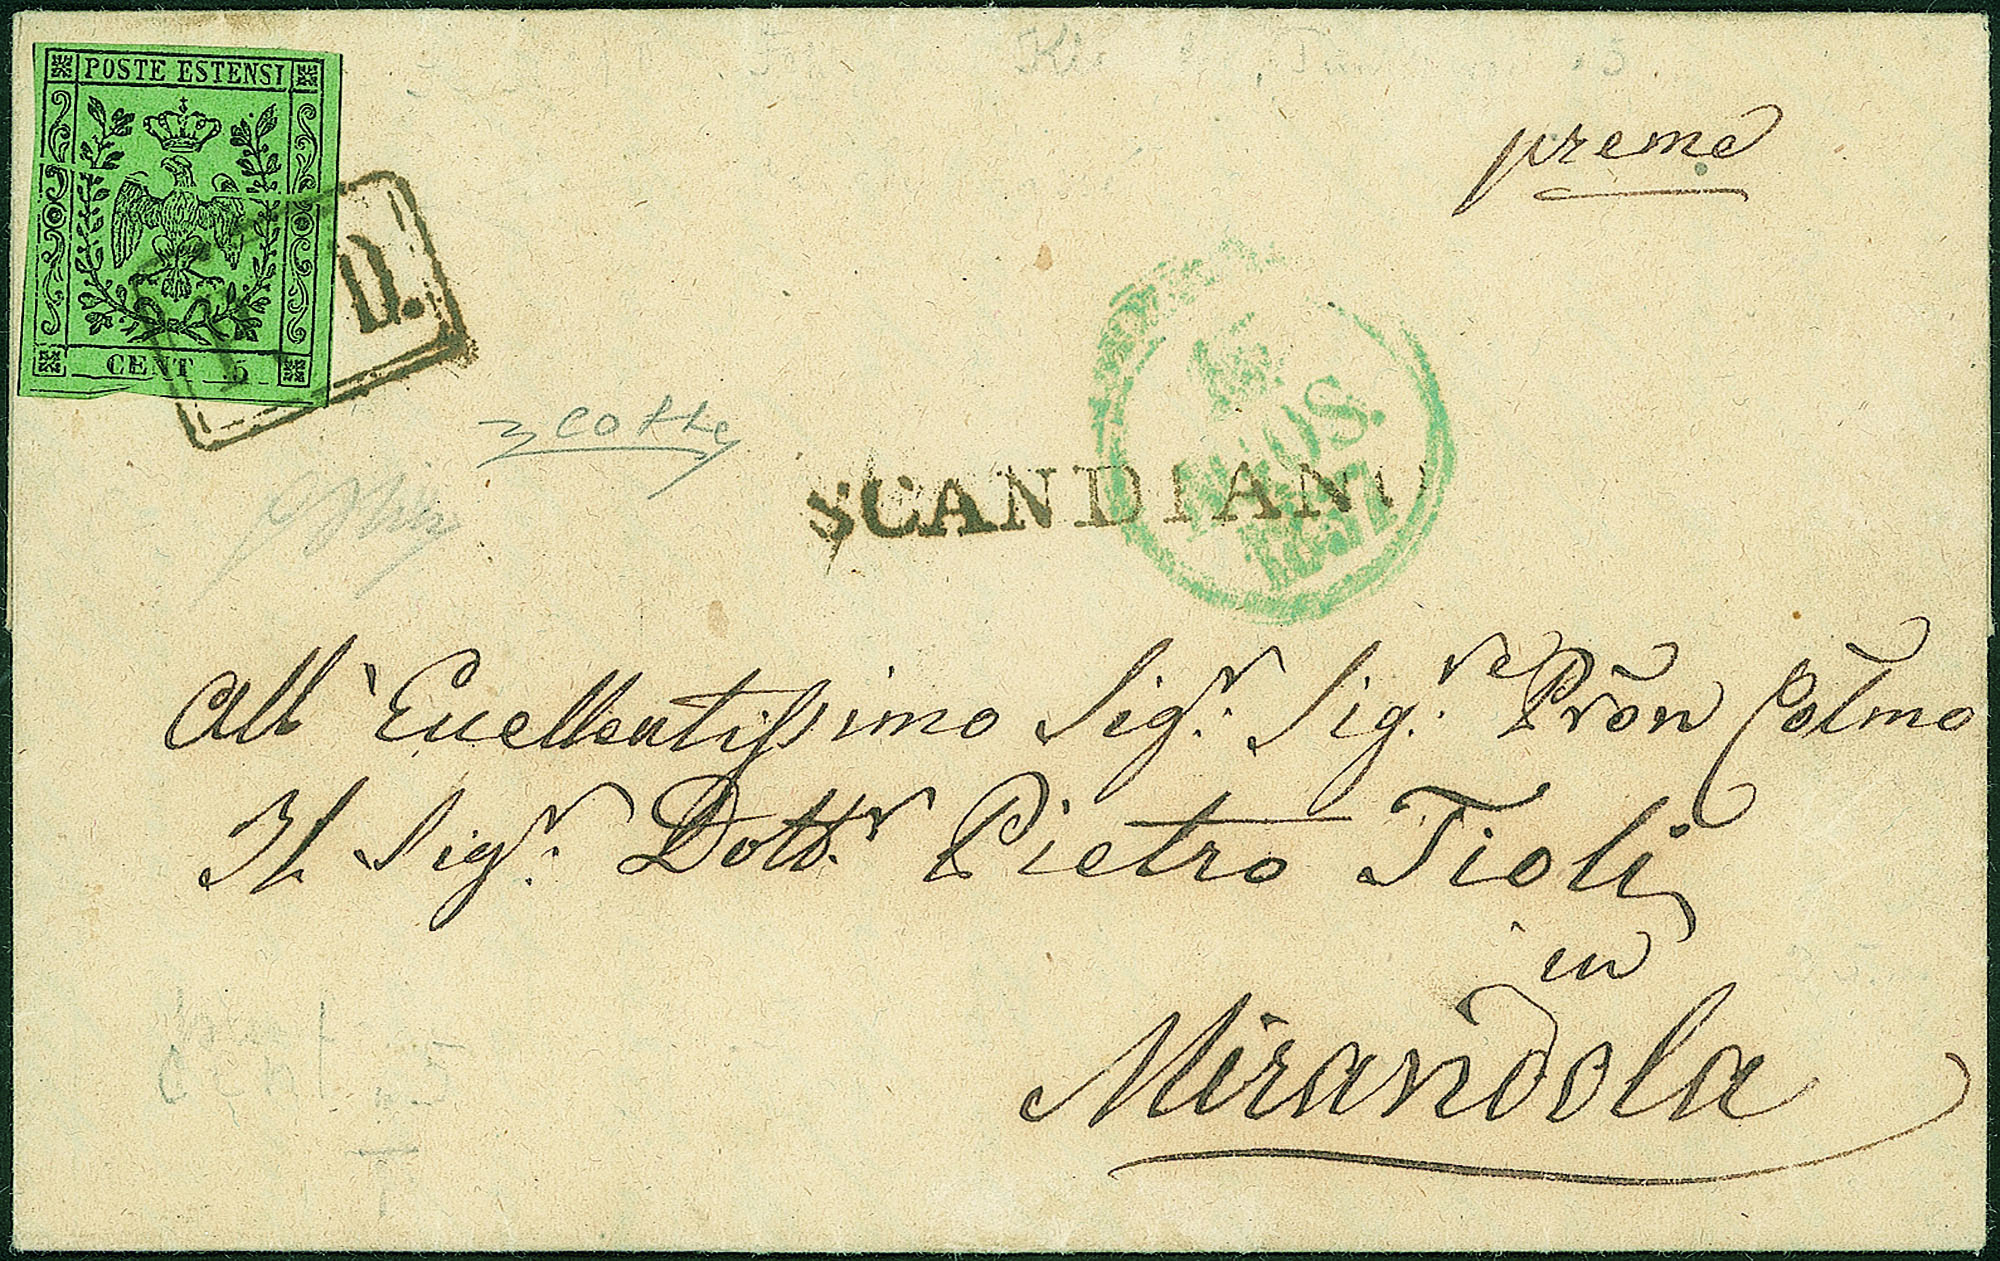 POSTE ESTENSI
CENT 5
P. D.
preme
SCANDIANO
AGOS.
1857
All' Eccellentissimo Sig.r Sig.re Pron Colmo
Il Sig.r Dott.r Pietro Tioli
in
Mirandola
Cent 5